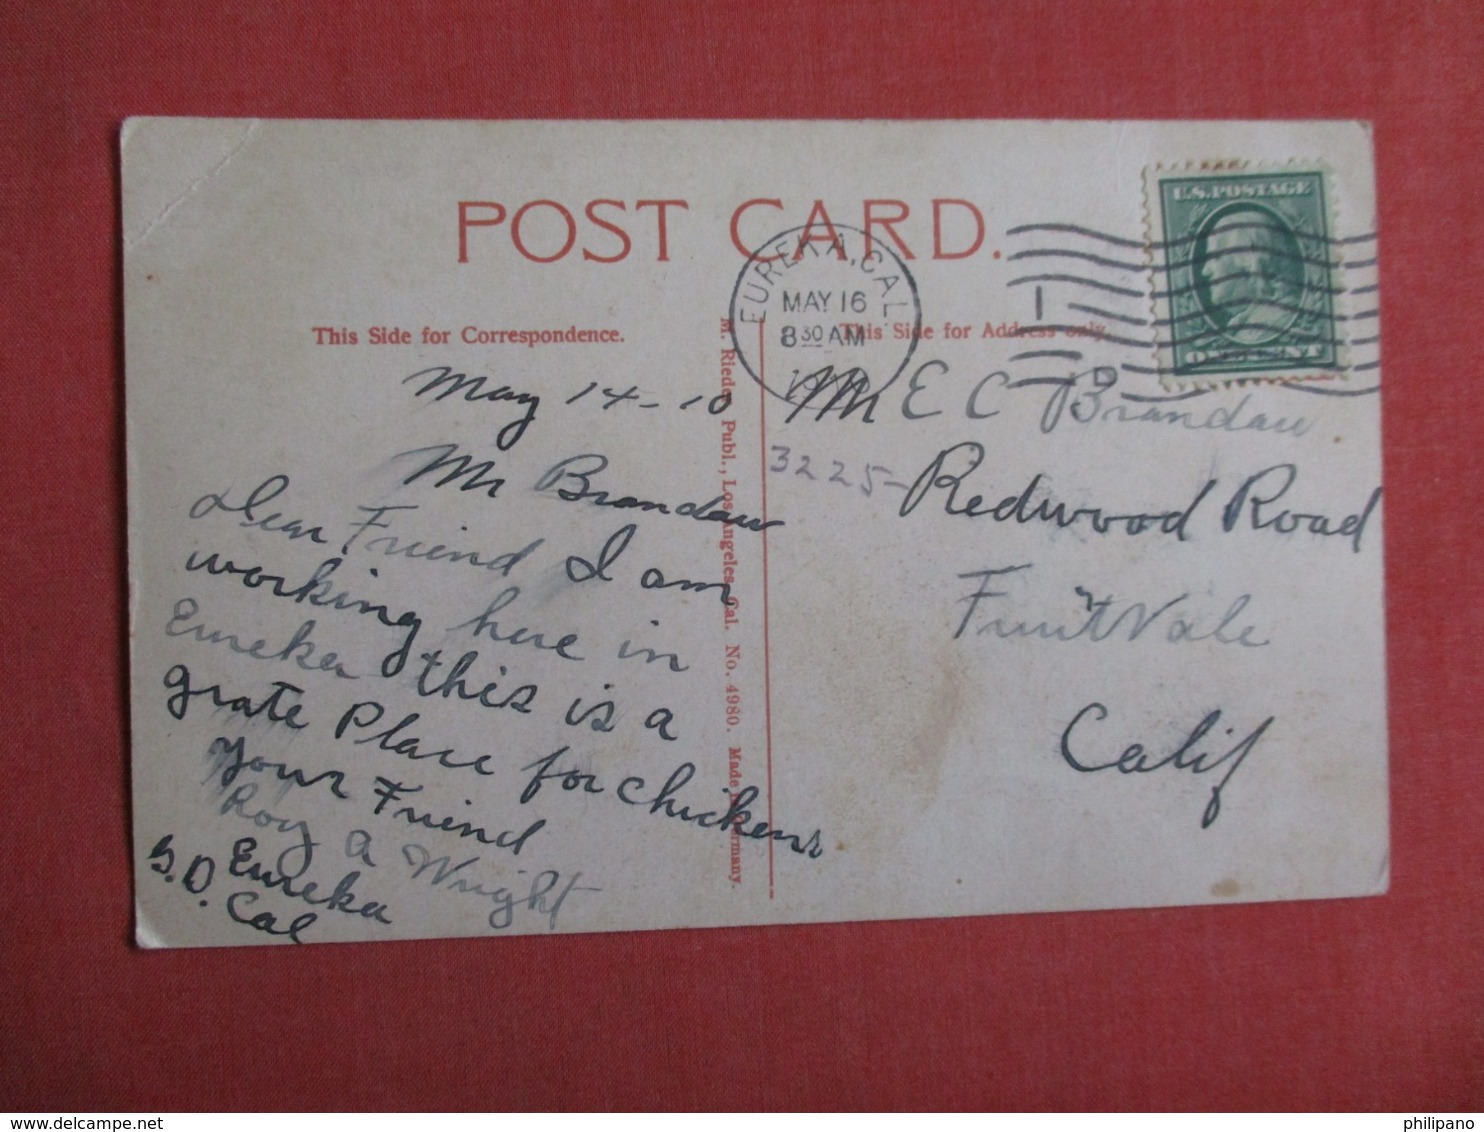 POST CARD.
EUREKA, CAL.
MAY 16
8 30 AM
U.S. POSTAGE
ONE CENT
1
D
This Side for Correspondence.
This Side for Address only.
May 14 - 10
Mr Brandau
Dear Friend I am
working here in
Eureka this is a
grate Place for chickens
Your Friend
Roy a Wright
Eureka
G. D. Cal
M. Rieder, Publ., Los Angeles, Cal. No. 4980. Made in Germany.
Mr E C Brandau
3225 - Redwood Road
FruitVale
Calif
philipano
delcampe.net